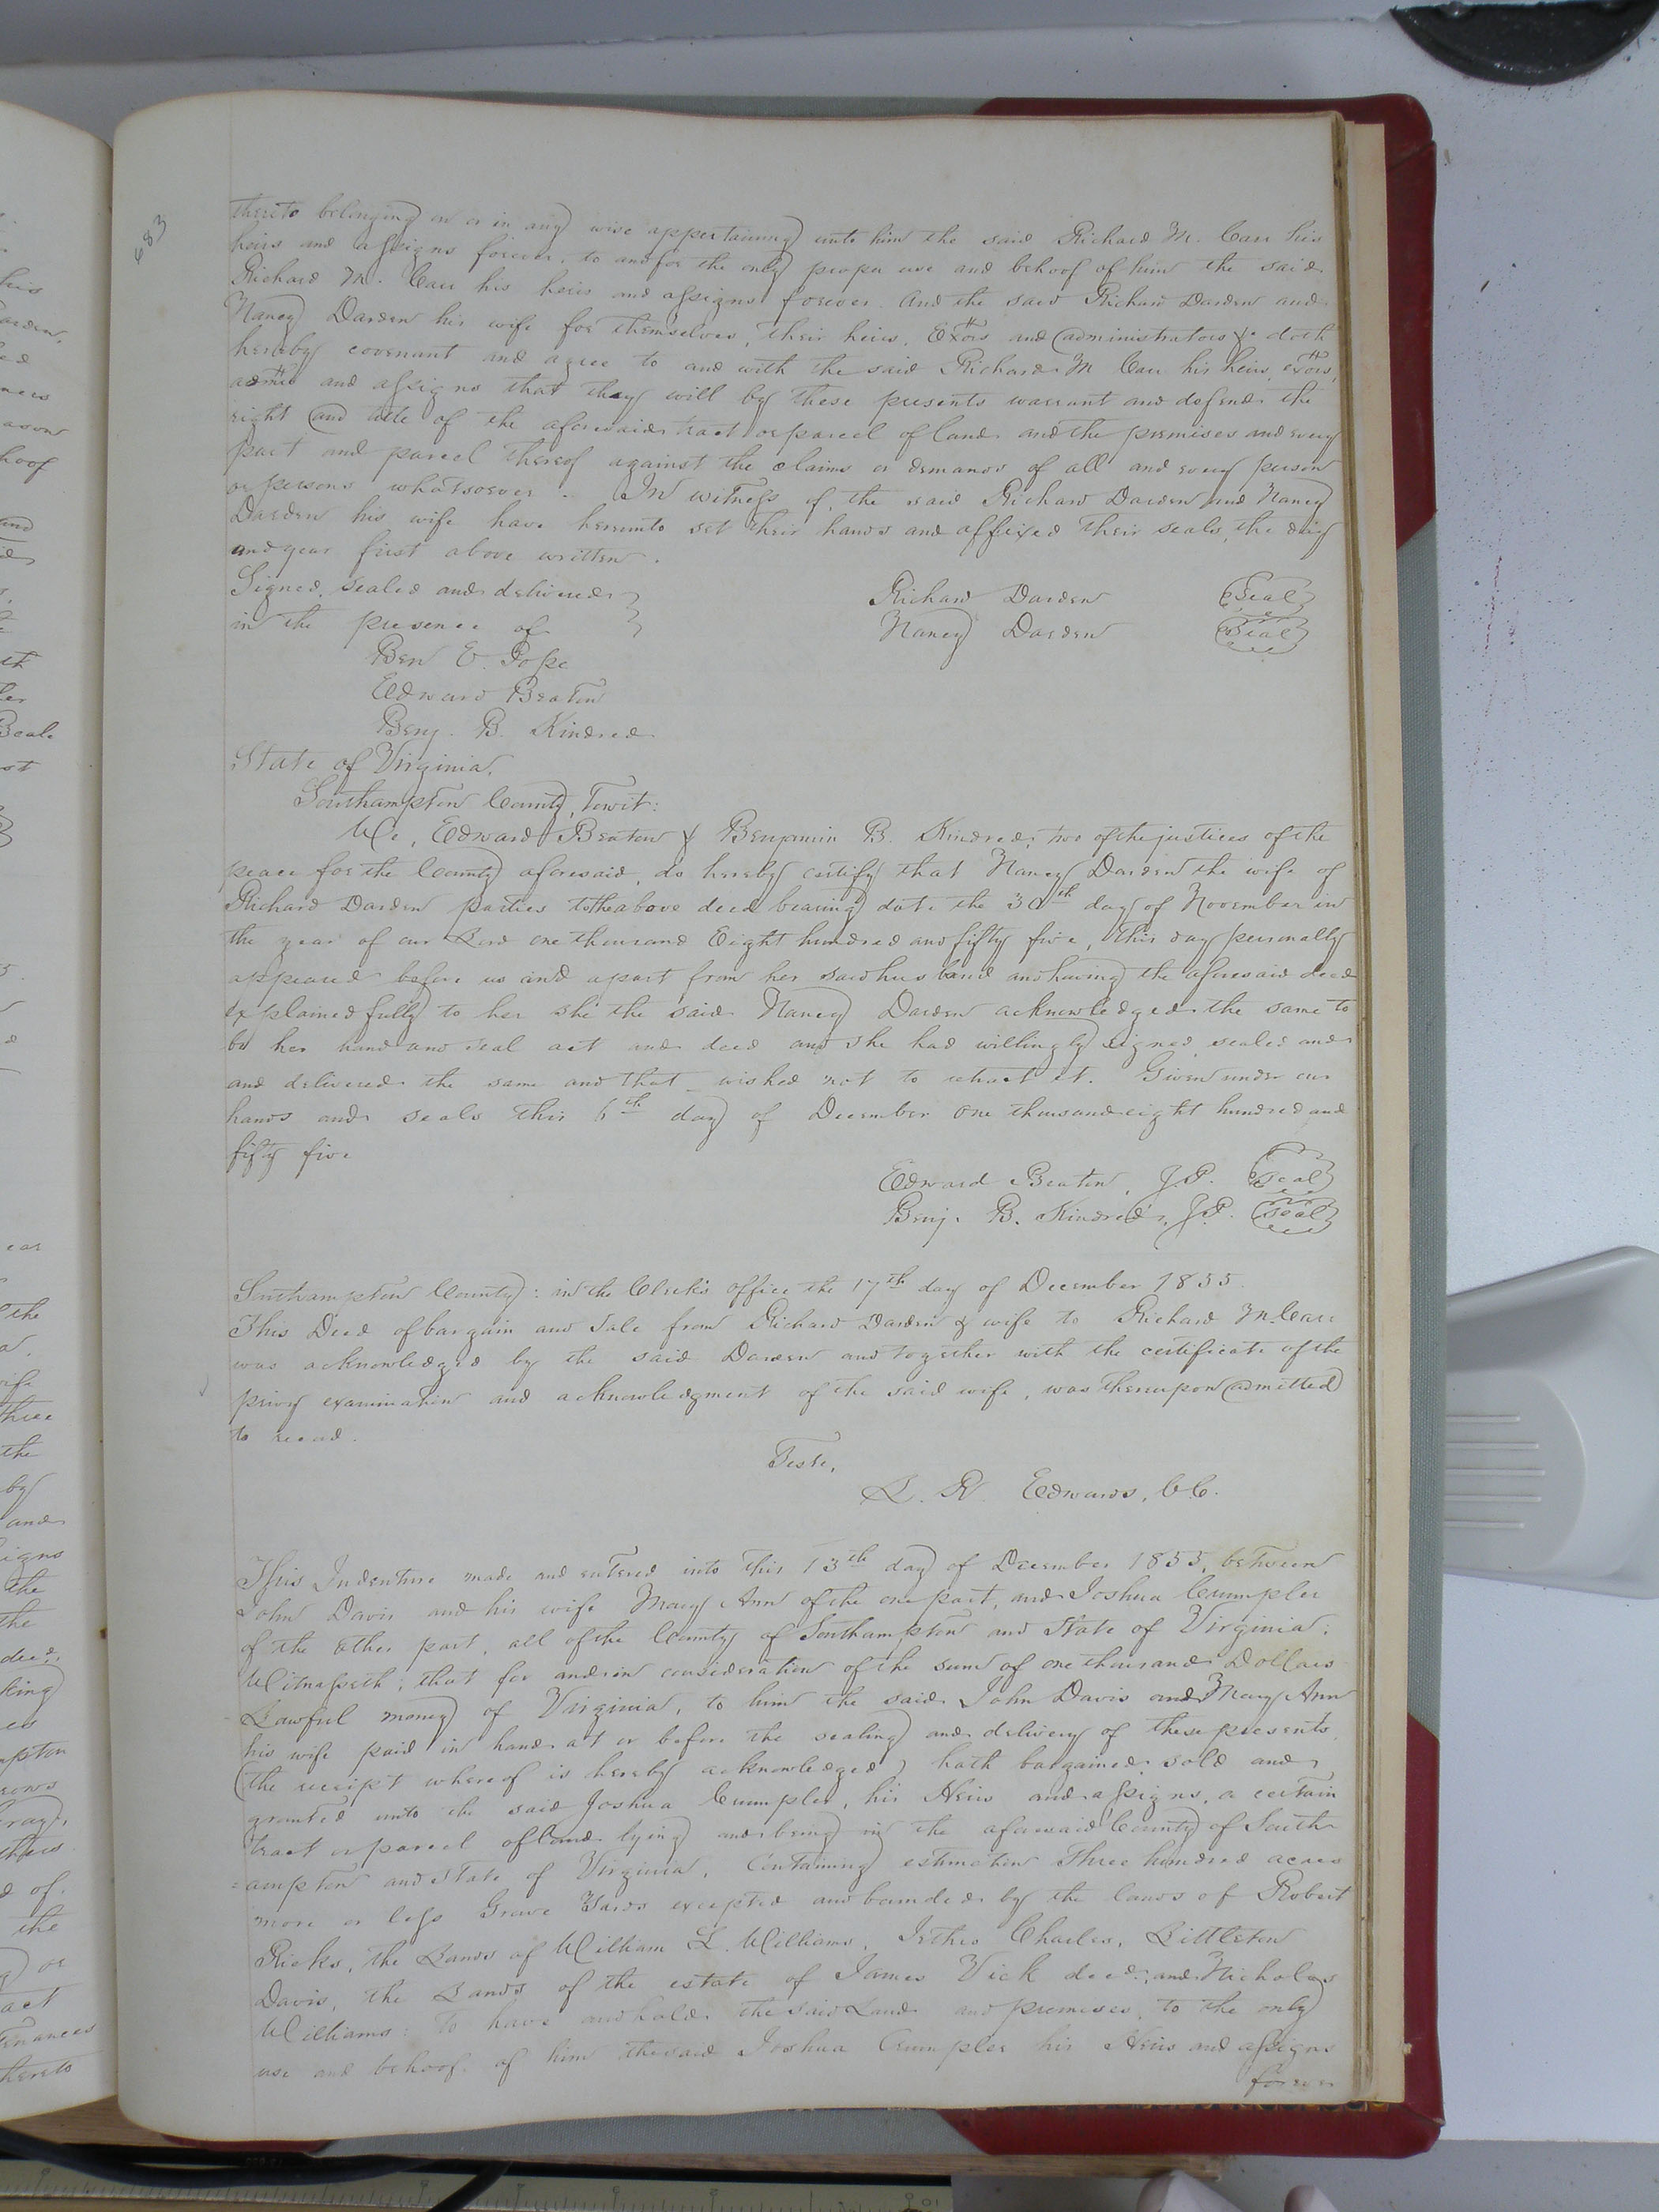 683
thereto belonging or in any wise appertaining unto him the said Richard M. Carr his
heirs and assigns forever, to and for the only proper use and behoof of him the said
Richard M. Carr his heirs and assigns forever. And the said Richard Darden and
Nancy Darden his wife for themselves, their heirs, Exors and administrators &c doth
hereby covenant and agree to and with the said Richard M Carr his heirs, exors,
admrs and assigns that they will by these presents warrant and defend the
right and title of the aforesaid tract or parcel of land and the premises and every
part and parcel thereof against the claims or demands of all and every person
or persons whatsoever. In witness of, the said Richard Darden and Nancy
Darden his wife have hereunto set their hands and affixed their seals, the day
and year first above written.
Signed, sealed and delivered Richard Darden Seal
in the presence of Nancy Darden Seal
Ben E. Pope
Edward Beaton
Benj. B. Kindred
State of Virginia,
Southampton County, Towit:
We, Edward Beaton & Benjamin B. Kindred, two of the justices of the
peace for the County aforesaid, do hereby certify that Nancy Darden the wife of
Richard Darden parties to the above deed bearing date the 30th day of November in
the year of our Lord one thousand Eight hundred and fifty five, this day personally
appeared before us and apart from her said husband and having the aforesaid deed
explained fully to her she the said Nancy Darden acknowledged the same to
be her hand and seal act and deed and she had willingly signed, sealed and
and delivered the same and that wished not to retract it. Given under our
hands and seals this 6th day of December one thousand eight hundred and
fifty five
Edward Beaton, J.P. Seal
Benj. B. Kindred, J.P. Seal
Southampton County: in the Clerk's office the 17th day of December 1855.
This Deed of bargain and Sale from Richard Darden & wife to Richard M. Carr
was acknowledged by the said Darden and together with the certificate of the
privy examination and acknowledgment of the said wife, was thereupon admitted
to record.
Teste,
L. R. Edwards, CC.
This Indenture made and entered into this 13th day of December 1855, between
John Davis and his wife Mary Ann of the one part, and Joshua Crumpler
of the other part, all of the County of Southampton and State of Virginia:
Witnesseth; that for and in consideration of the sum of one thousand Dollars
Lawful money of Virginia, to him the said John Davis and Mary Ann
his wife paid in hand at or before the sealing and delivery of these presents,
(the receipt whereof is hereby acknowledged) hath bargained, sold and
granted unto the said Joshua Crumpler, his Heirs and assigns, a certain
tract or parcel of land lying and being in the aforesaid County of South
=ampton and State of Virginia, Containing estimation Three hundred acres
more or less Grave Yards excepted and bounded by the lands of Robert
Ricks, the Lands of William L. Williams, Charles, Littleton
Davis, the Lands of the estate of James Vick decd; and Nicholas
Williams: To have and hold the said Land and premises, to the only
use and behoof of him the said Joshua Crumpler his Heirs and assigns
forever